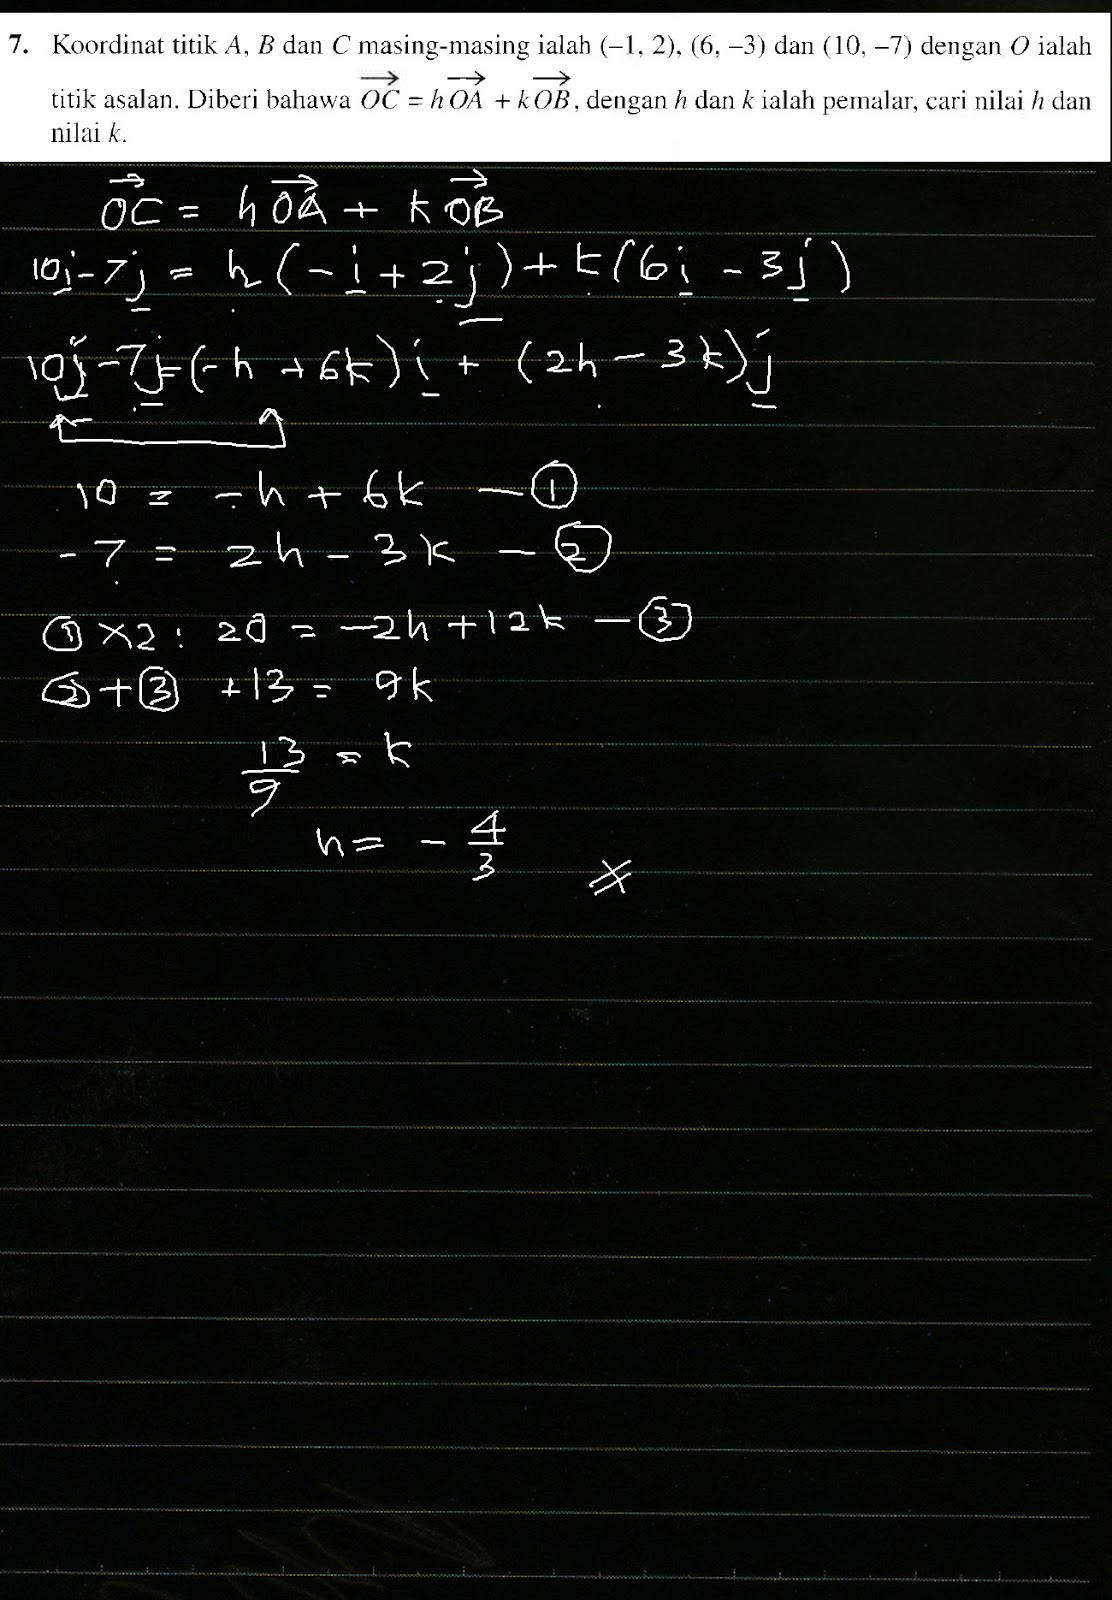 7. Koordinat titik A, B dan C masing-masing ialah (–1, 2), (6, –3) dan (10, –7) dengan O ialah
titik asalan. Diberi bahawa OC→ = h OA→ + k OB→, dengan h dan k ialah pemalar, cari nilai h dan
nilai k.
OC→ = h OA→ + k OB→
10i - 7j = h(-i + 2j) + k(6i - 3j)
10i - 7j = (-h + 6k)i + (2h - 3k)j
10 = -h + 6k — ①
-7 = 2h - 3k — ②
① × 2 : 20 = -2h + 12k — ③
② + ③ +13 = 9k
13/9 = k
h = - 4/3